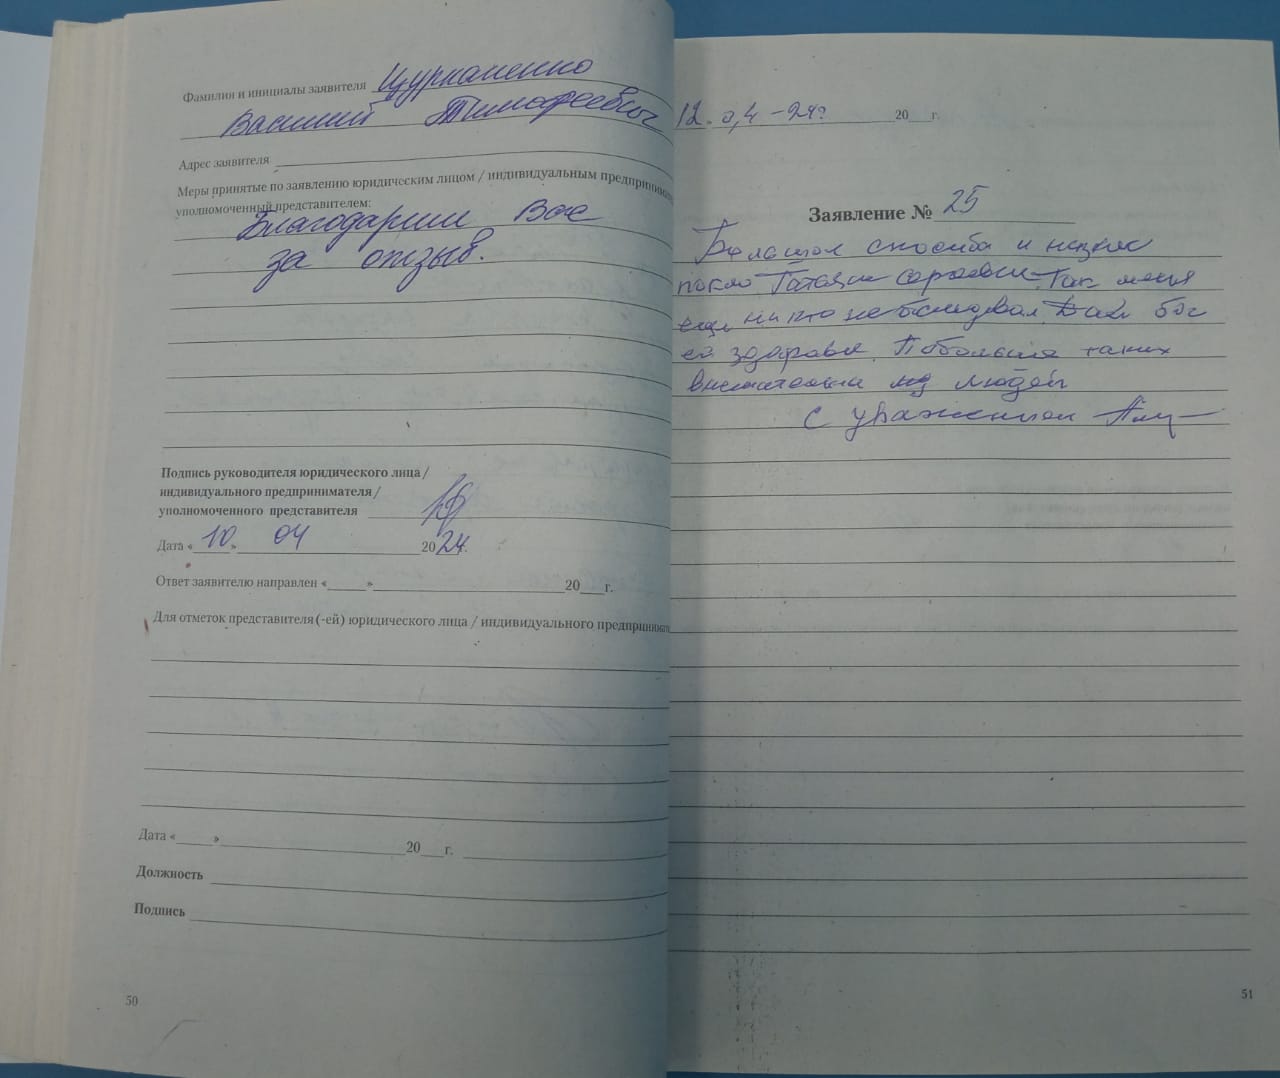 Фамилия и инициалы заявителя Цуркаленко
Василий Тимофеевич
Адрес заявителя
Меры принятые по заявлению юридическим лицом / индивидуальным предпринимат
уполномоченный представителем:
Благодарим Вас
за отзыв.
Подпись руководителя юридического лица /
индивидуального предпринимателя /
уполномоченного представителя
Дата « 10 » 04 2024.
Ответ заявителю направлен «_____» 20___г.
Для отметок представителя (-ей) юридического лица / индивидуального предпринимат
Дата «_____» 20___г.
Должность
Подпись
50
12. 0,4 - 24г 20 г.
Заявление № 25
Большая спосиба и низкие
покло Татьяне Сергеевне. Так меня
еще никто не обследовал. Дай бог
ей здоровье. Побольше таких
внимательных людей
С уважением
51